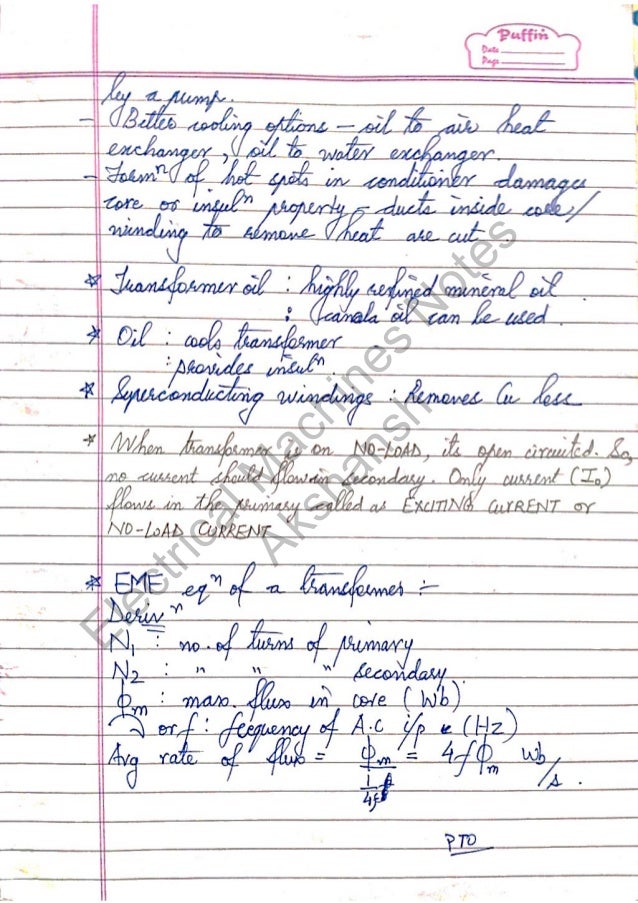 Puffin
Date
Page
by a pump.
- Better cooling options – oil to air heat
exchanger, oil to water exchanger.
- Formⁿ of hot spots in conditioner damages
core or insulⁿ property – ducts inside core/
winding to remove heat are cut.
* Transformer oil : highly refined mineral oil
: canola oil can be used.
* Oil : cools transformer
: provides insulⁿ.
* Superconducting windings : Removes Cu loss
* When transformer is on NO-LOAD, its open circuited. So,
no current should flow in secondary. Only current (I₀)
flows in the primary called as EXCITING CURRENT or
NO-LOAD CURRENT
* EME eqⁿ of a transformer :-
Derivⁿ
N₁ : no. of turns of primary
N₂ : " " " secondary
ϕm : max. flux in core (Wb)
or f : frequency of A.C i/p (Hz)
Avg rate of flux = ϕm / (1/4f) = 4fϕm Wb/s.
PTO
Electrical Machines Notes
Akshansh